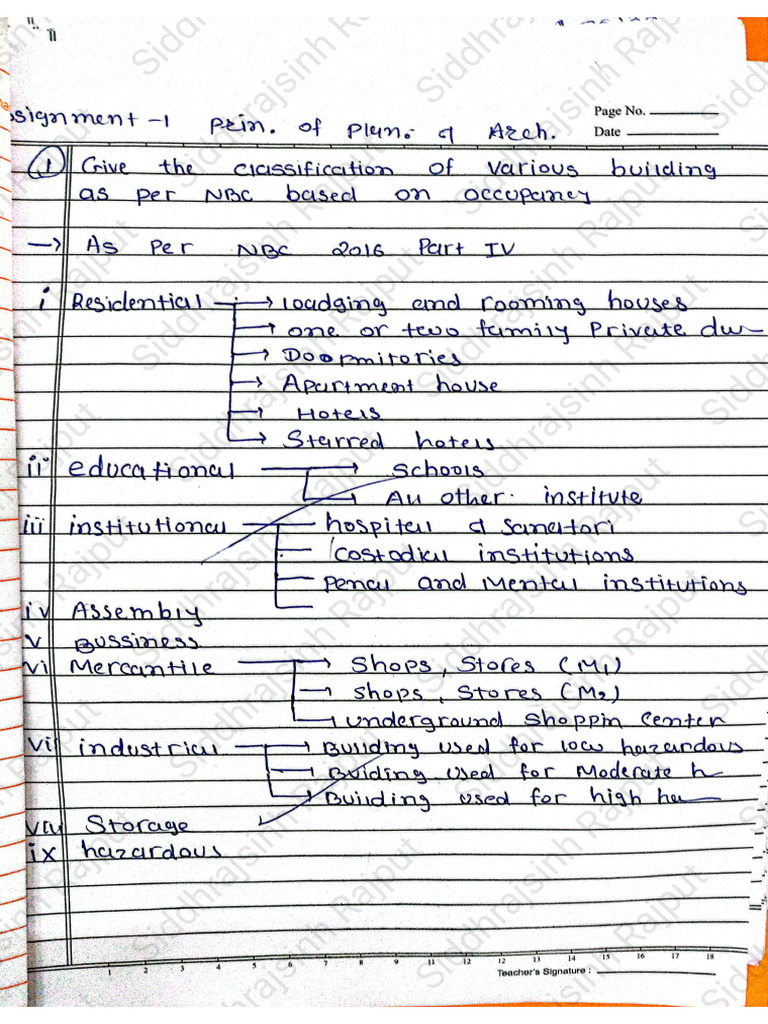 ssignment -1 prin. of plan. & Arch.
Page No.
Date
① Give the classification of various building
as per NBC based on occupancy
→ As per NBC 2016 Part IV
i Residential → loadging and rooming houses
→ one or two family Private dw
→ Doopmitories
→ Apartment house
→ Hotels
→ Starred hotels
ii educational → schools
→ All other institute
iii institutional — hospital & Sanatori
costodial institutions
penal and Mental institutions
iv Assembly
v Bussiness
vi Mercantile → Shops, Stores (M1)
→ shops, Stores (M2)
underground shoppin center
vii industrial → Building used for low hazardous
→ Building used for Moderate h
→ Building used for high ha
Storage
ix hazardous
1 2 3 4 5 6 7 8 9 11 12 12 13 14 15 16 17 18
Teacher's Signature :
Siddhrajsinh Rajput